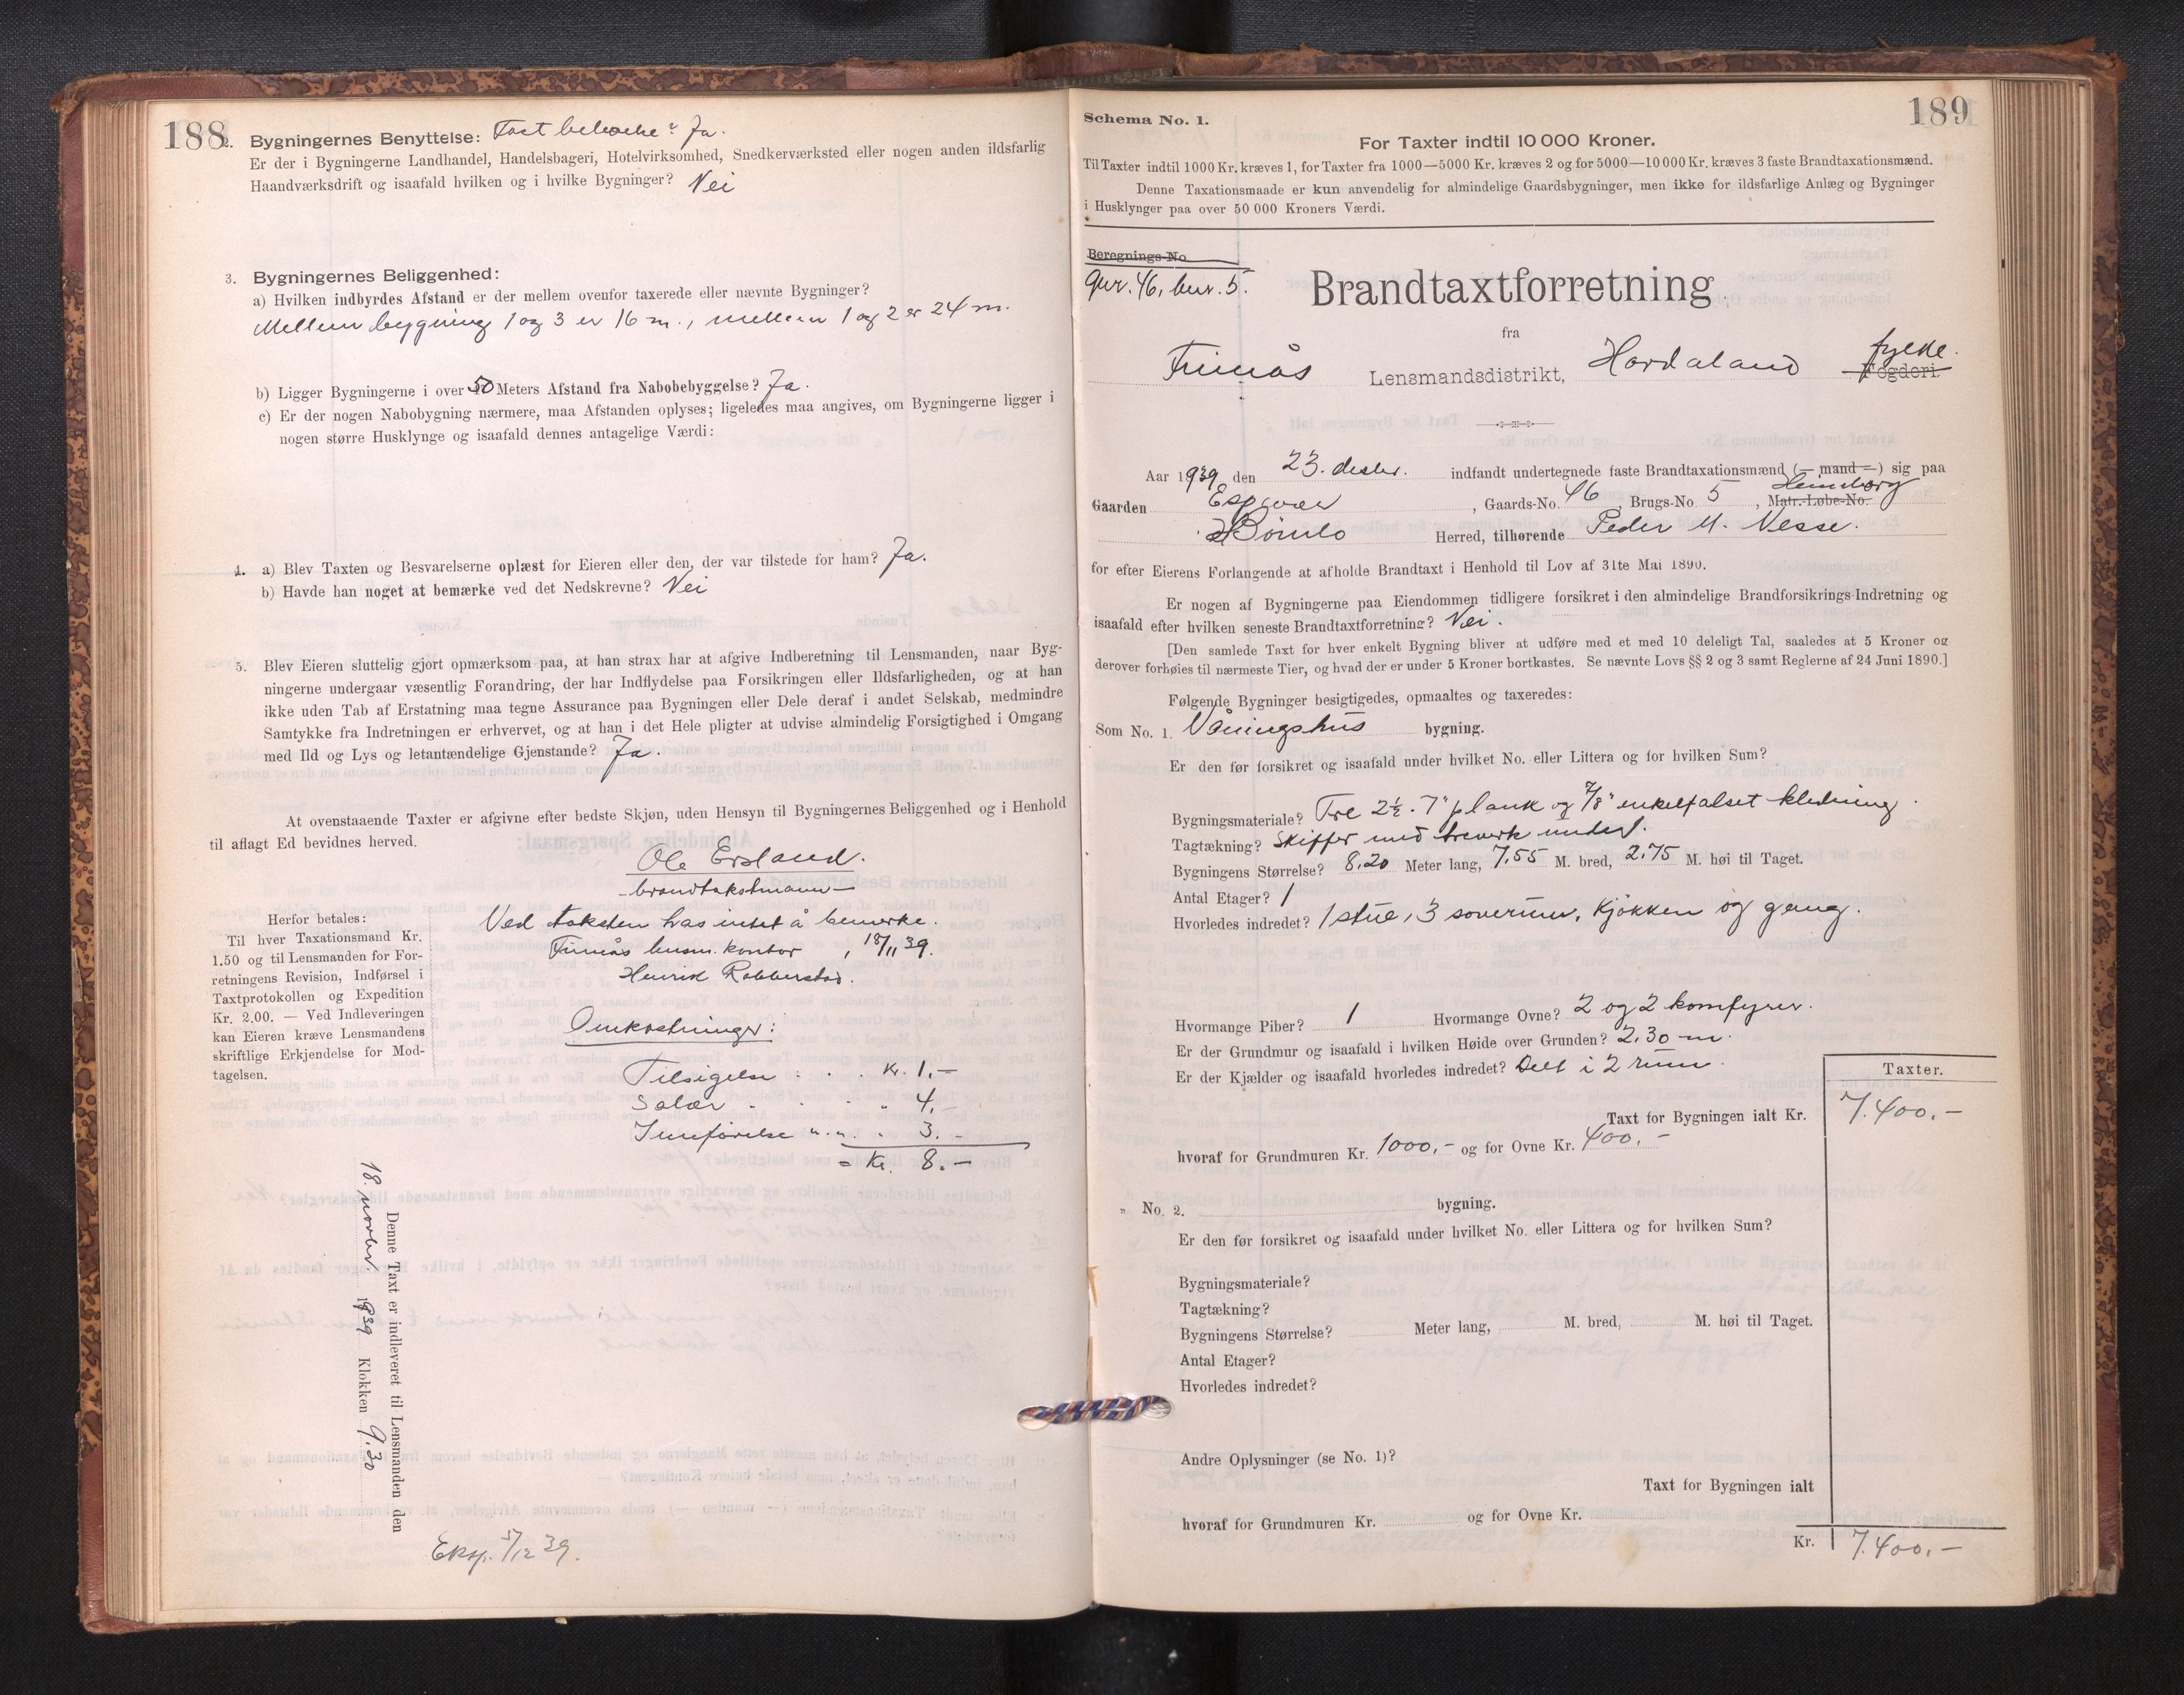 188
2. Bygningernes Benyttelse: Fast beboelse? Ja.
Er der i Bygningerne Landhandel, Handelsbageri, Hotelvirksomhed, Snedkerværksted eller nogen anden ildsfarlig
Haandværksdrift og isaafald hvilken og i hvilke Bygninger? Nei
3. Bygningernes Beliggenhed:
a) Hvilken indbyrdes Afstand er der mellem ovenfor taxerede eller nævnte Bygninger?
Mellem bygning 1 og 3 er 16 m., mellem 1 og 2 er 24 m.
b) Ligger Bygningerne i over 50 Meters Afstand fra Nabobebyggelse? Ja.
c) Er der nogen Nabobygning nærmere, maa Afstanden oplyses; ligeledes maa angives, om Bygningerne ligger i
nogen større Husklynge og isaafald dennes antagelige Værdi:
4. a) Blev Taxten og Besvarelserne oplæst for Eieren eller den, der var tilstede for ham? Ja.
b) Havde han noget at bemærke ved det Nedskrevne? Nei
5. Blev Eieren sluttelig gjort opmærksom paa, at han strax har at afgive Indberetning til Lensmanden, naar Byg-
ningerne undergaar væsentlig Forandring, der har Indflydelse paa Forsikringen eller Ildsfarligheden, og at han
ikke uden Tab af Erstatning maa tegne Assurance paa Bygningen eller Dele deraf i andet Selskab, medmindre
Samtykke fra Indretningen er erhvervet, og at han i det Hele pligter at udvise almindelig Forsigtighed i Omgang
med Ild og Lys og letantændelige Gjenstande? Ja.
At ovenstaaende Taxter er afgivne efter bedste Skjøn, uden Hensyn til Bygningernes Beliggenhed og i Henhold
til aflagt Ed bevidnes herved.
Ole Ersland.
– brandtakstmann –
Ved taksten has intet å bemerke.
Finnås lensm. kontor, 18/11 39.
Henrik Robberstad.
Herfor betales:
Til hver Taxationsmand Kr.
1.50 og til Lensmanden for For-
retningens Revision, Indførsel i
Taxtprotokollen og Expedition
Kr. 2,00. — Ved Indleveringen
kan Eieren kræve Lensmandens
skriftlige Erkjendelse for Mod-
tagelsen.
Omkostninger:
Tilsigelse . . . Kr. 1.–
Salær . . . . " 4.–
Innførelse m.m. " 3.–
= Kr. 8.–
Denne Taxt er indleveret til Lensmanden den
18. novbr. 1939 Klokken 9.30
Eksp. 5/12 39.
189
Schema No. 1.
For Taxter indtil 10 000 Kroner.
Til Taxter indtil 1000 Kr. kræves 1, for Taxter fra 1000—5000 Kr. kræves 2 og for 5000—10 000 Kr. kræves 3 faste Brandtaxationsmænd.
Denne Taxationsmaade er kun anvendelig for almindelige Gaardsbygninger, men ikke for ildsfarlige Anlæg og Bygninger
i Husklynger paa over 50 000 Kroners Værdi.
Beregnings-No
gnr. 46, bnr. 5.
Brandtaxtforretning
fra
Finnås Lensmandsdistrikt, Hordaland fylke.
Fogderi.
Aar 1939, den 23. desbr. indfandt undertegnede faste Brandtaxationsmænd (— mand —) sig paa
Gaarden Espevær, Gaards-No. 46, Brugs-No. 5, Matr.-Løbe-No. Heimborg
Bømlo Herred, tilhørende Peder M. Nesse.
for efter Eierens Forlangende at afholde Brandtaxt i Henhold til Lov af 31te Mai 1890.
Er nogen af Bygningerne paa Eiendommen tidligere forsikret i den almindelige Brandforsikrings-Indretning og
isaafald efter hvilken seneste Brandtaxtforretning? Nei.
[Den samlede Taxt for hver enkelt Bygning bliver at udføre med et med 10 deleligt Tal, saaledes at 5 Kroner og
derover forhøies til nærmeste Tier, og hvad der er under 5 Kroner bortkastes. Se nævnte Lovs §§ 2 og 3 samt Reglerne af 24 Juni 1890.]
Følgende Bygninger besigtigedes, opmaaltes og taxeredes:
Som No. 1. Våningshus bygning.
Er den før forsikret og isaafald under hvilket No. eller Littera og for hvilken Sum?
Bygningsmateriale? Tre 2½ . 7" plank og 7/8" enkelfalset kledning
Tagtækning? Skiffer med treverk under.
Bygningens Størrelse? 8,20 Meter lang, 7,55 M. bred, 2,75 M. høi til Taget.
Antal Etager? 1
Hvorledes indredet? 1 stue, 3 soverum, kjøkken og gang.
Hvormange Piber? 1 Hvormange Ovne? 2 og 2 komfyrer.
Er der Grundmur og isaafald i hvilken Høide over Grunden? 2,30 m.
Er der Kjælder og isaafald hvorledes indredet? Delt i 2 rum.
Taxter.
Taxt for Bygningen ialt Kr. 7.400.–
hvoraf for Grundmuren Kr. 1000,– og for Ovne Kr. 400.–
" No. 2. bygning.
Er den før forsikret og isaafald under hvilket No. eller Littera og for hvilken Sum?
Bygningsmateriale?
Tagtækning?
Bygningens Størrelse? Meter lang, M. bred, M. høi til Taget.
Antal Etager?
Hvorledes indredet?
Andre Oplysninger (se No. 1)?
Taxt for Bygningen ialt
hvoraf for Grundmuren Kr. og for Ovne Kr.
Kr. 7.400.–